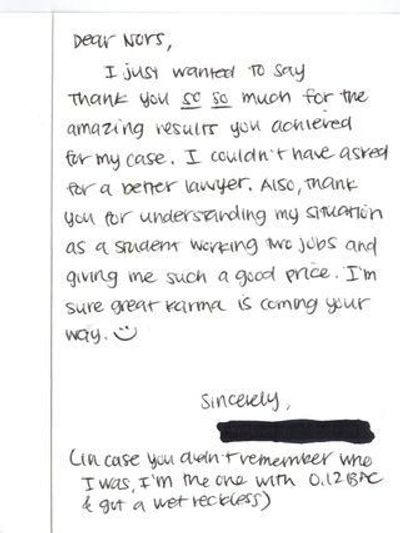 Dear Nors,
I just wanted to say
thank you so so much for the
amazing results you achieved
for my case. I couldn't have asked
for a better lawyer. Also, thank
you for understanding my situation
as a student working two jobs and
giving me such a good price. I'm
sure great karma is coming your
way.
Sincerely,
(in case you didn't remember who
I was, I'm the one with 0.12 BAC
& got a wet reckless)